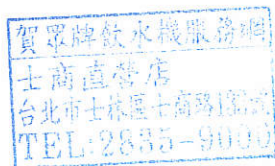 賀眾牌飲水機服務網
士商直營店
台北市士林區士商路1 號
TEL:2835-9000